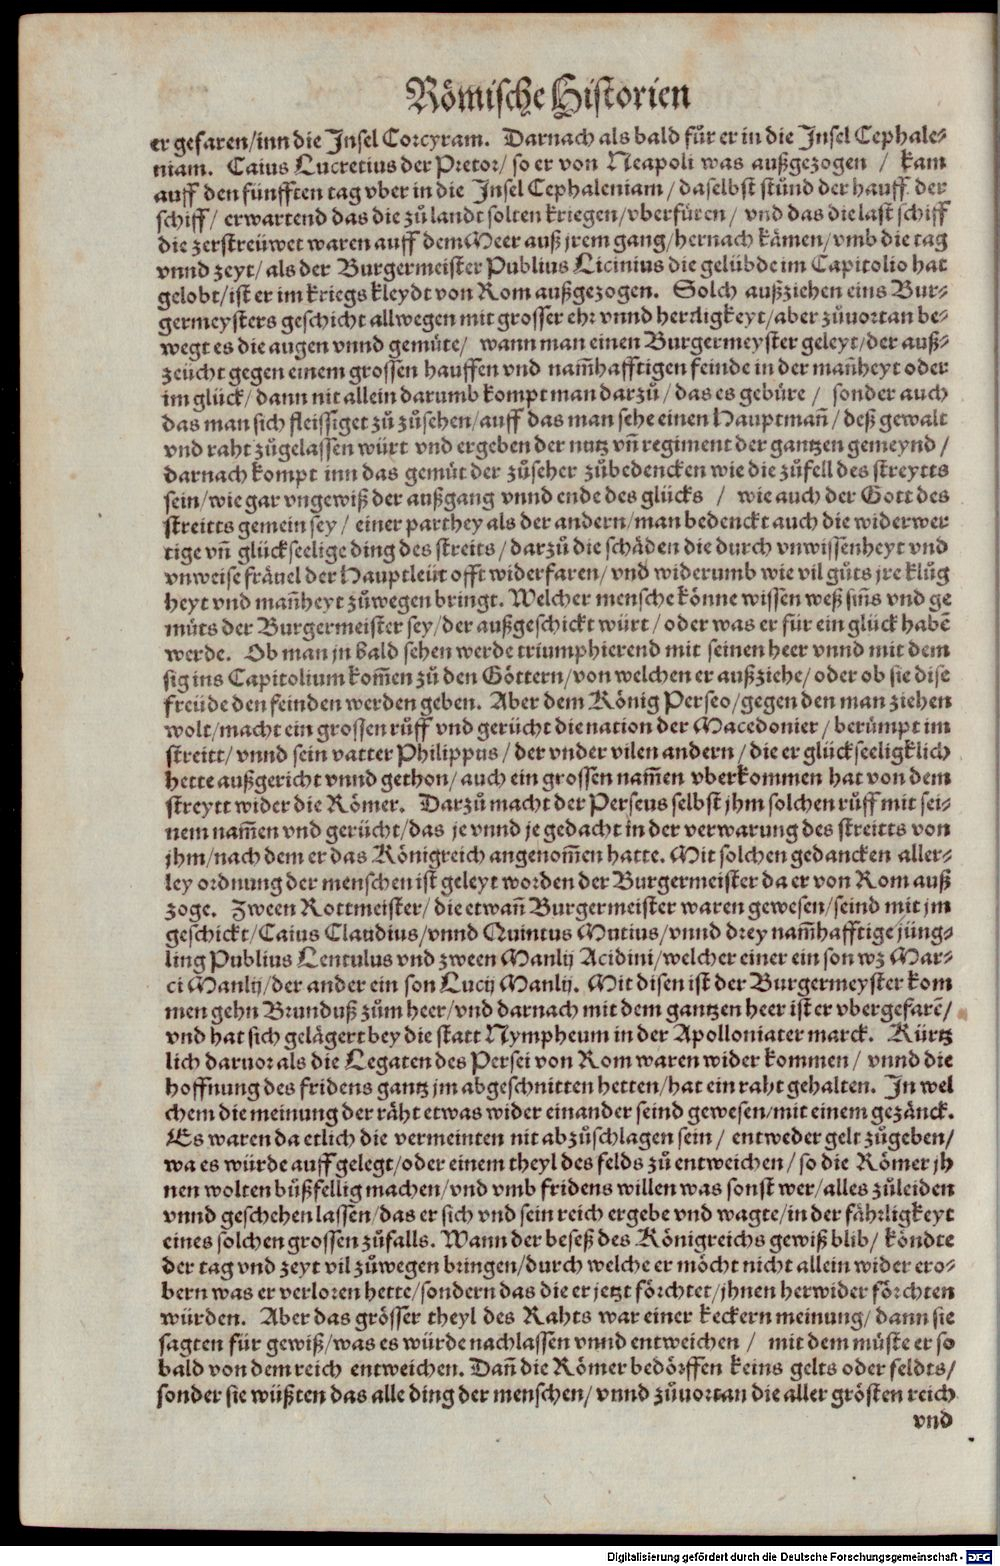 Römische Historien
er gefaren/inn die Jnsel Corcyram. Darnach als bald fůr er in die Jnsel Cephale-
niam. Caius Lucretius der Pretor/ so er von Neapoli was außgezogen / kam
auff den fünfften tag vber in die Jnsel Cephaleniam/ daselbst stůnd der hauff der
schiff/ erwartend das die zů landt solten kriegen/vberfüren/ vnd das die last schiff
die zerstreüwet waren auff dem Meer auß jrem gang/hernach kämen/vmb die tag
vnnd zeyt/ als der Burgermeister Publius Licinius die gelübde im Capitolio hat
gelobt/ist er im kriegs kleydt von Rom außgezogen. Solch außziehen eins Bur-
germeysters geschicht allwegen mit grosser ehr vnnd herrligkeyt/aber zůuortan be-
wegt es die augen vnnd gemüte/ wann man einen Burgermeyster geleyt/der auß-
zeücht gegen einem grossen hauffen vnd nam̃hafftigen feinde in der mañheyt oder
im glück/ dann nit allein darumb kompt man darzů/das es gebüre / sonder auch
das man sich fleissiget zů zůsehen/auff das man sehe einen Hauptmañ/ deß gewalt
vnd raht zůgelassen würt vnd ergeben der nutz vñ regiment der gantzen gemeynd/
darnach kompt inn das gemüt der zůseher zůbedencken wie die zůfell des streytts
sein/wie gar vngewiß der außgang vnnd ende des glücks / wie auch der Gott des
streitts gemein sey/ einer parthey als der andern/man bedenckt auch die widerwer
tige vñ glückseelige ding des streits/ darzů die schäden die durch vnwissenheyt vnd
vnweise fräuel der Hauptleüt offt widerfaren/ vnd widerumb wie vil gůts jre klůg
heyt vnd mañheyt zůwegen bringt. Welcher mensche könne wissen weß siñs vnd ge
můts der Burgermeister sey/der außgeschickt würt/ oder was er für ein glück habẽ
werde. Ob man jn bald sehen werde triumphierend mit seinen heer vnnd mit dem
sig ins Capitolium kom̃en zů den Göttern/von welchen er außziehe/oder ob sie dise
freüde den feinden werden geben. Aber dem König Perseo/gegen den man ziehen
wolt/macht ein grossen růff vnd gerücht die nation der Macedonier/ berümpt im
streitt/ vnnd sein vatter Philippus/ der vnder vilen andern/ die er glückseeligklich
hette außgericht vnnd gethon/ auch ein grossen nam̃en vberkommen hat von dem
streytt wider die Römer. Darzů macht der Perseus selbst jhm solchen růff mit sei-
nem nam̃en vnd gerücht/das je vnnd je gedacht in der verwarung des streitts von
jhm/nach dem er das Königreich angenom̃en hatte. Mit solchen gedancken aller-
ley ordnung der menschen ist geleyt worden der Burgermeister da er von Rom auß
zoge. Zween Rottmeister/ die etwañ Burgermeister waren gewesen/seind mit jm
geschickt/Caius Claudius/vnnd Quintus Mutius/vnnd drey nam̃hafftige jüng-
ling Publius Lentulus vnd zween Manlij Acidini/welcher einer ein son wz Mar-
ci Manlij/der ander ein son Lucij Manlij. Mit disen ist der Burgermeyster kom
men gehn Brunduß zům heer/vnd darnach mit dem gantzen heer ist er vbergefarẽ/
vnd hat sich gelägert bey die statt Nympheum in der Apolloniater marck. Kürtz
lich daruor als die Legaten des Persei von Rom waren wider kommen/ vnnd die
hoffnung des fridens gantz jm abgeschnitten hetten/hat ein raht gehalten. Jn wel
chem die meinung der räht etwas wider einander seind gewesen/mit einem gezänck.
Es waren da etlich die vermeinten nit abzůschlagen sein/ entweder gelt zůgeben/
wa es würde auff gelegt/oder einem theyl des felds zů entweichen/so die Römer jh
nen wolten bůßfellig machen/vnd vmb fridens willen was sonst wer/alles zůleiden
vnnd geschehen lassen/das er sich vnd sein reich ergebe vnd wagte/in der fährligkeyt
eines solchen grossen zůfalls. Wann der beseß des Königreichs gewiß blib/ köndte
der tag vnd zeyt vil zůwegen bringen/durch welche er möcht nicht allein wider ero-
bern was er verloren hette/sondern das die er jetzt förchtet/jhnen herwider förchten
würden. Aber das grösser theyl des Rahts war einer keckern meinung/dann sie
sagten für gewiß/was es würde nachlassen vnnd entweichen / mit dem müste er so
bald von dem reich entweichen. Dañ die Römer bedörffen keins gelts oder feldts/
sonder sie wüßten das alle ding der menschen/ vnnd zůuortan die aller grösten reich
vnd
Digitalisierung gefördert durch die Deutsche Forschungsgemeinschaft - DFG